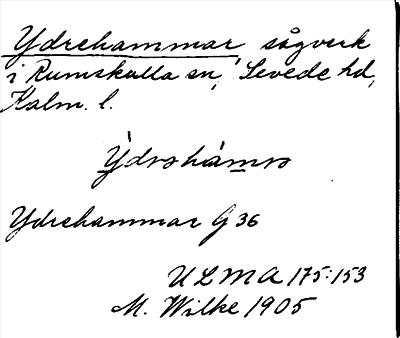 Ydrehammar, sågverk
i Rumskulla sn, Sevede hd,
Kalm. l.
Ydrehammar G 36
ULMA 175:153
M. Wilke 1905